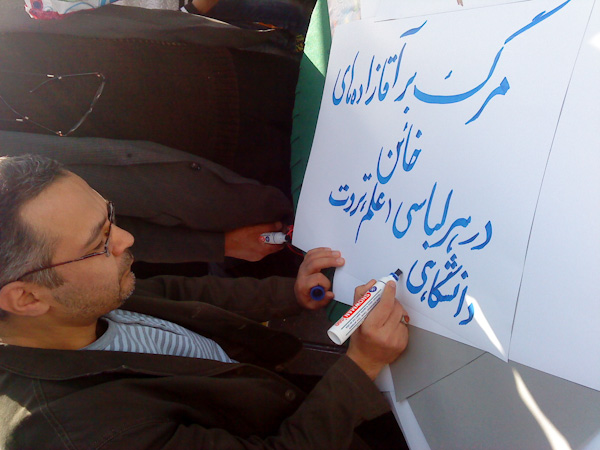 مرگ بر آقازاده‌های
خائن
در هر لباسی (علم، ثروت
دانشگاهی